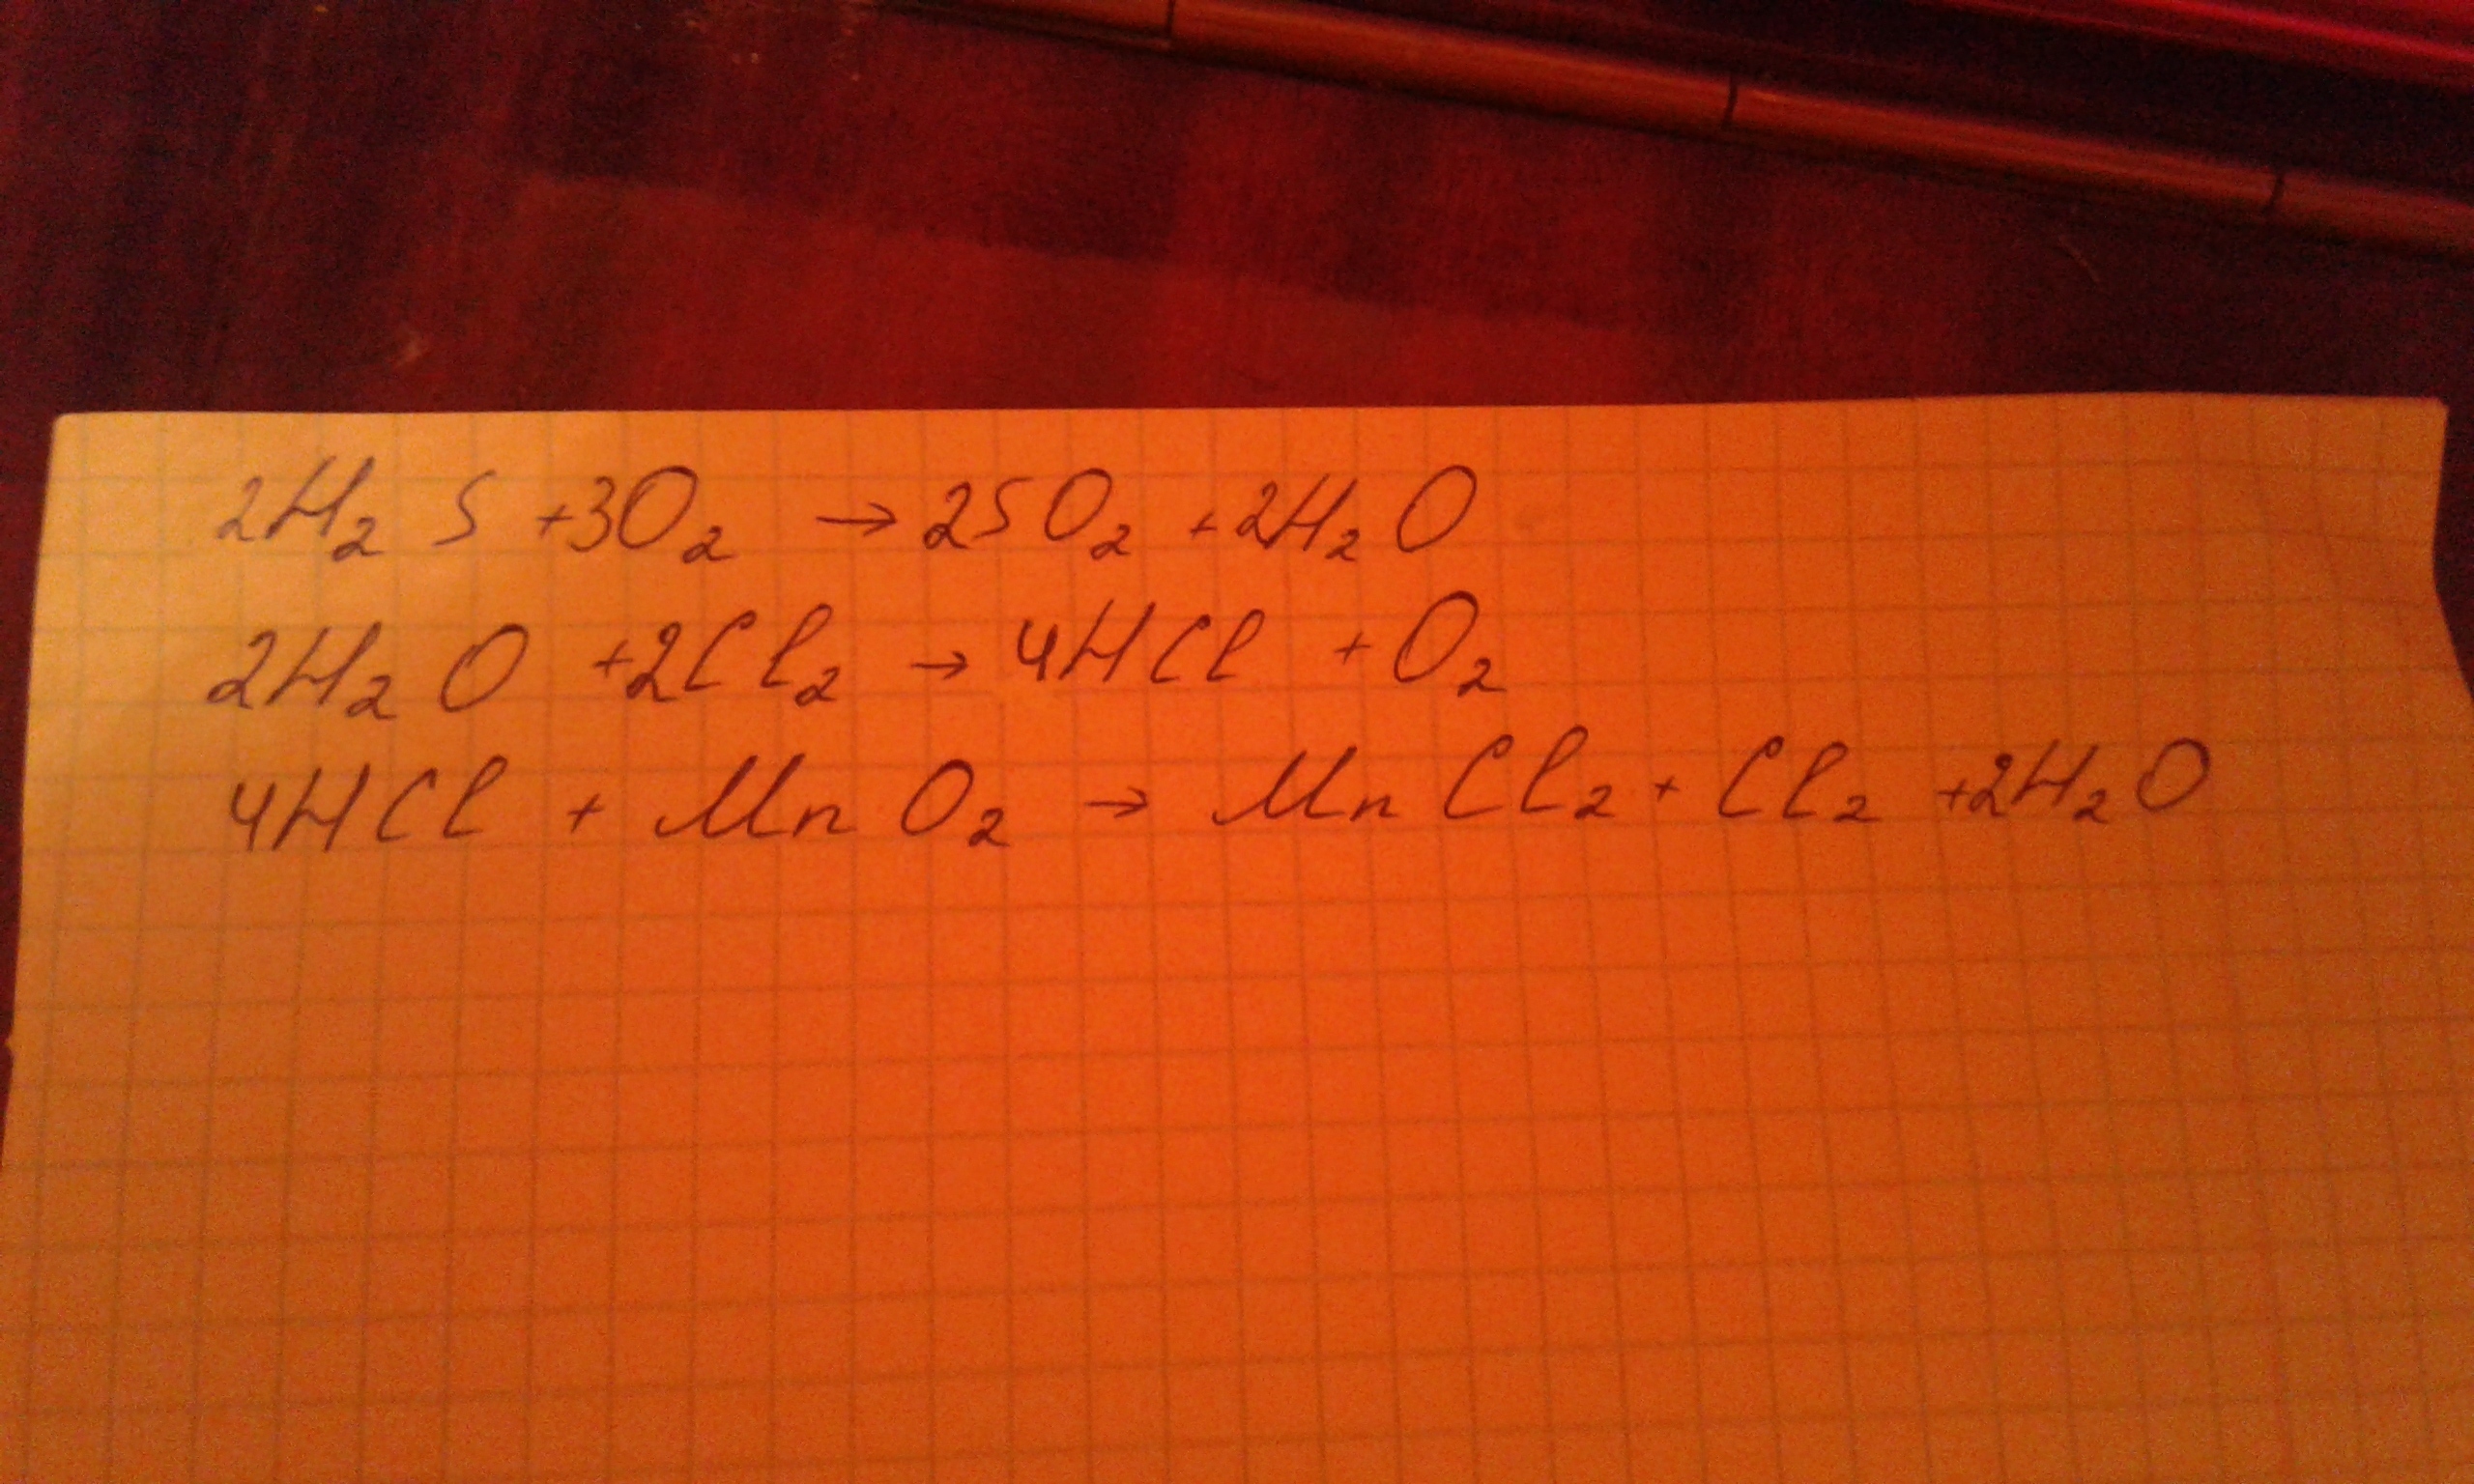 2H₂S + 3O₂ → 2SO₂ + 2H₂O
2H₂O + 2Cl₂ → 4HCl + O₂
4HCl + MnO₂ → MnCl₂ + Cl₂ + 2H₂O